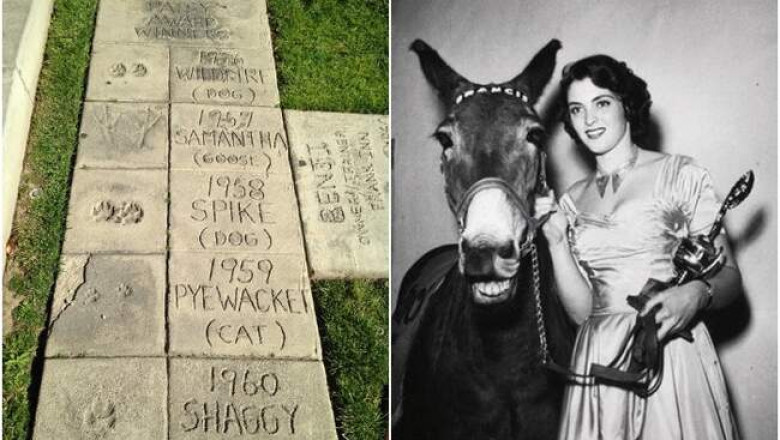 PATSY
AWARD
WINNERS
WILDFIRE
(DOG)
1957
SAMANTHA
(GOOSE)
1958
SPIKE
(DOG)
1959
PYEWACKET
(CAT)
1960
SHAGGY
BENJI
OWNER/TRAINER
FRANK INN
FRANCIS